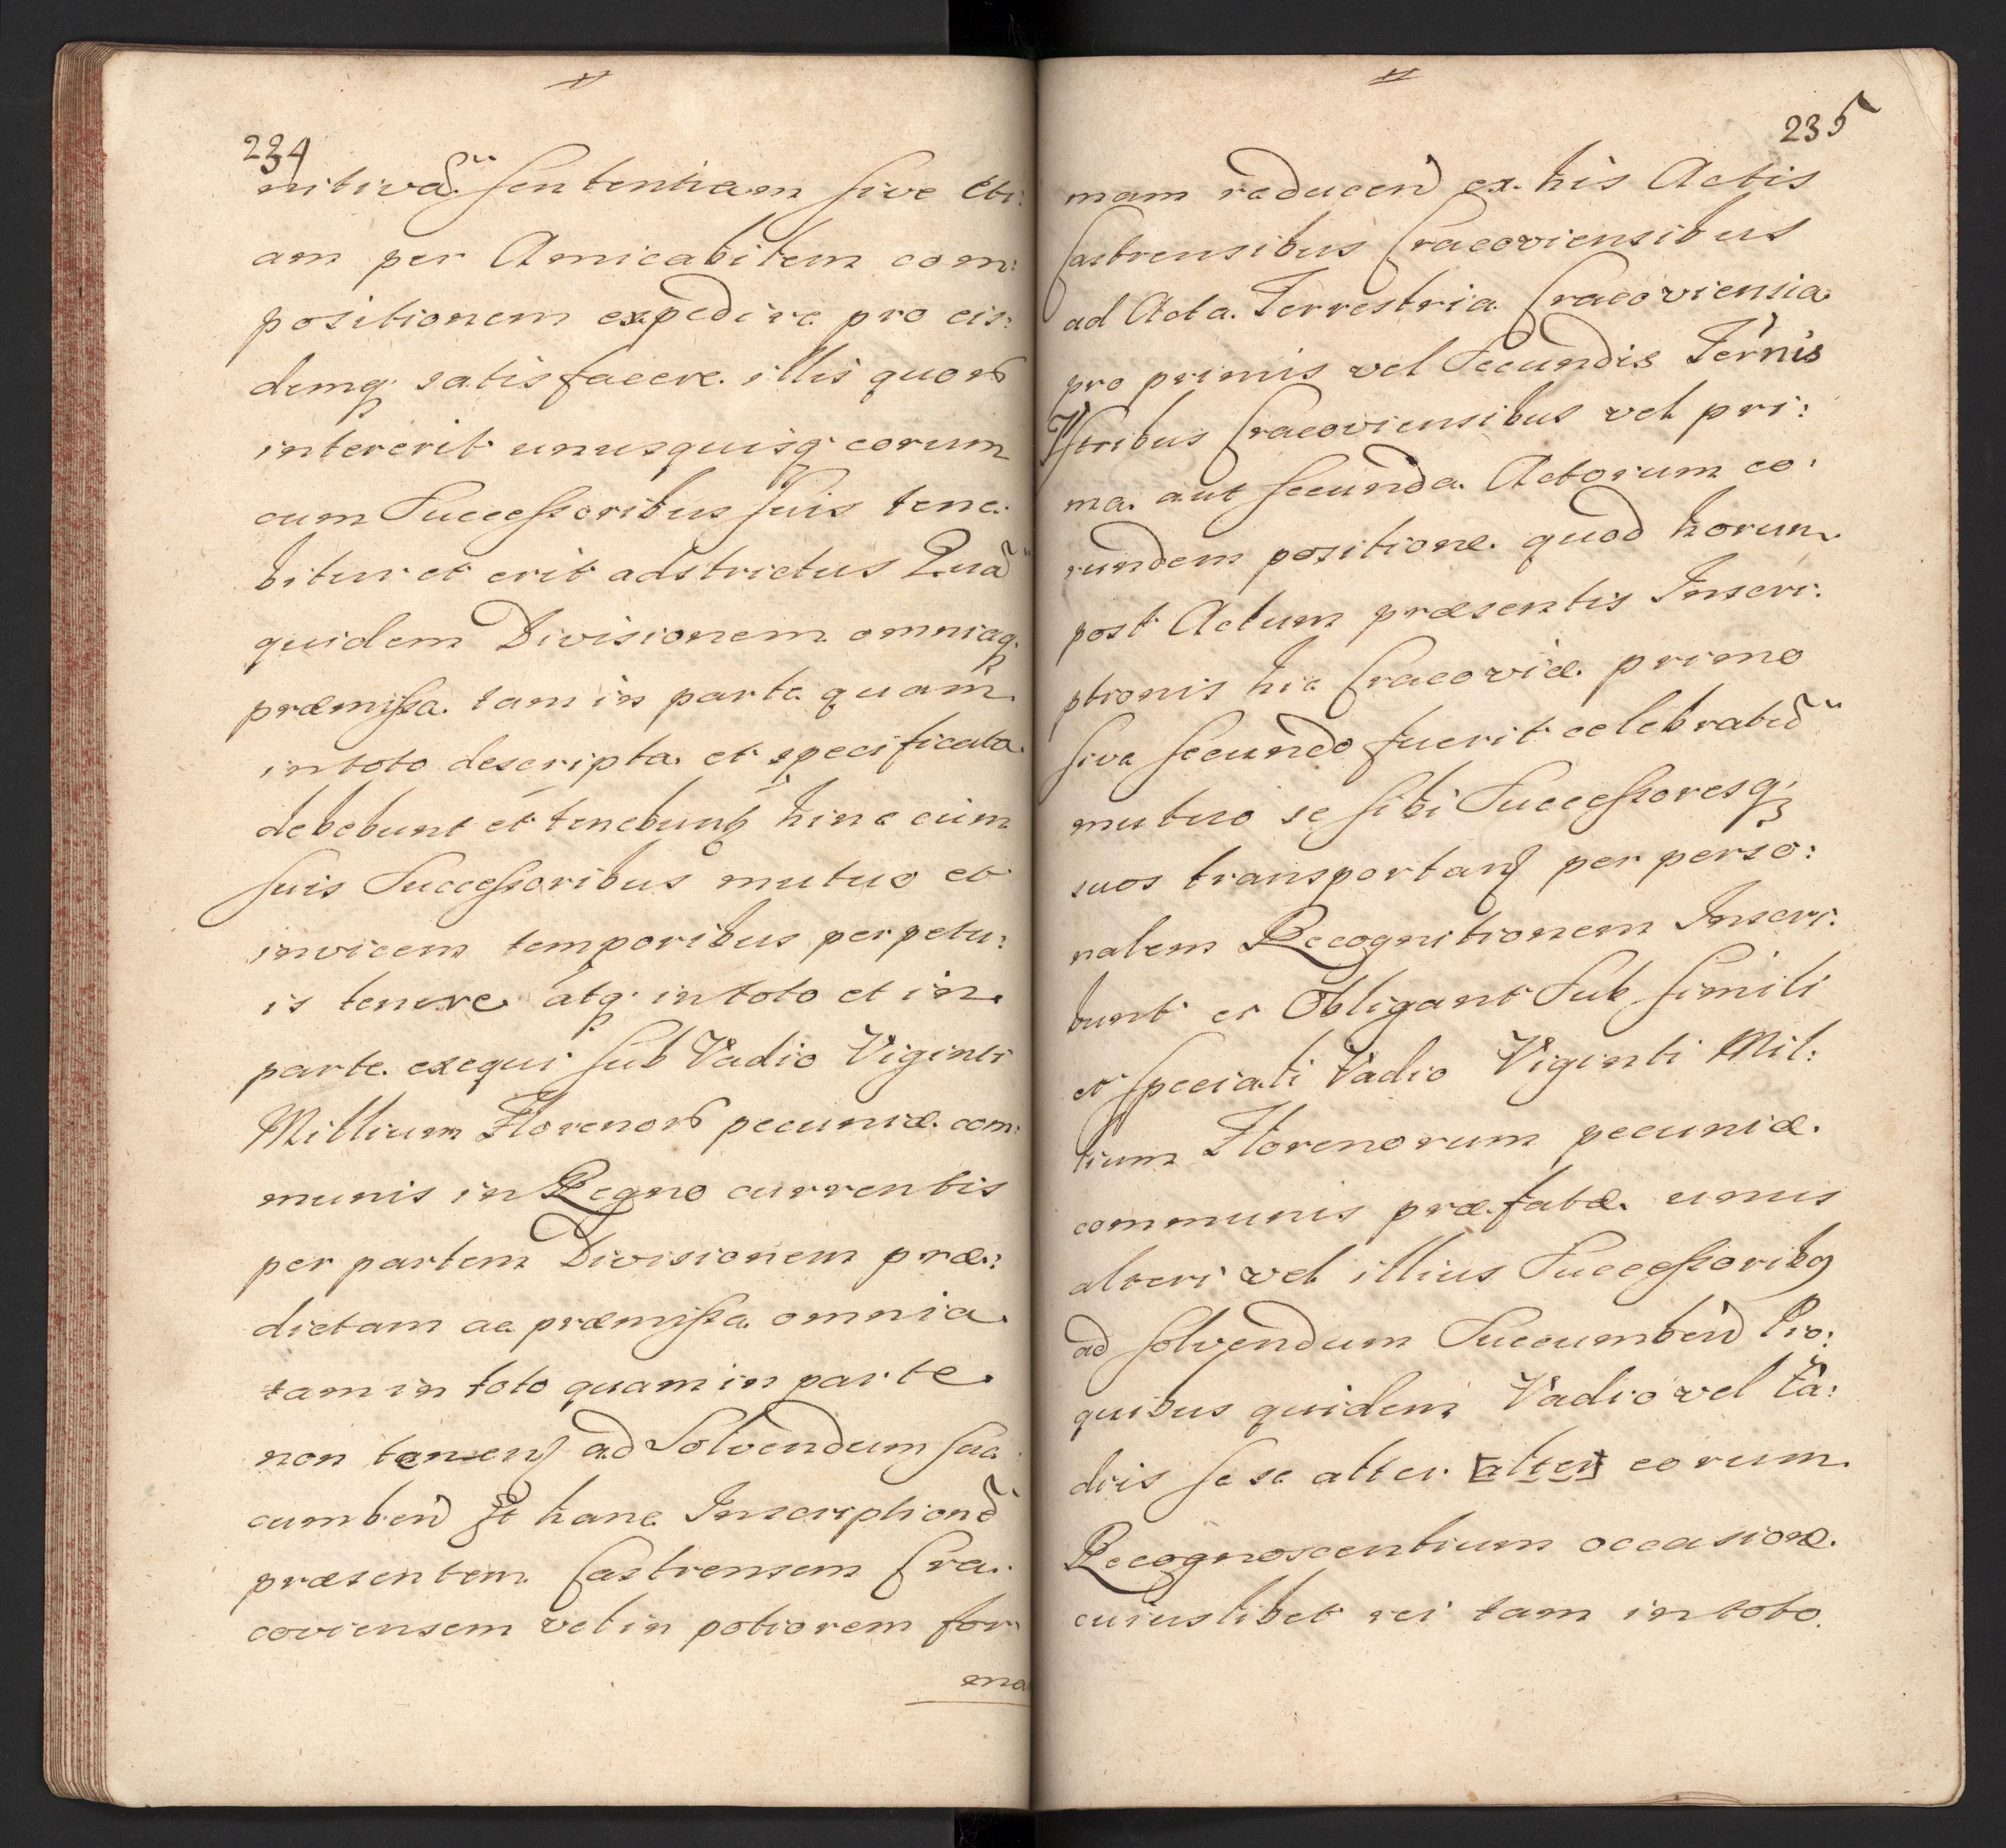 234
nitivã sententiam sive eti:
am per Amicabilem com:
positionem expedire pro eis:
demq; satisfacere illis quorũ
intererit unusquisq; eorum
cum Successoribus suis tene:
bitur et erit adstrictus Quã
quidem Divisionem omniaq;
præmissa tam in parte quam
in toto descripta et specificata
debebunt et tenebunt hinc cum
suis Successoribus mutuo et
invicem temporibus perpetu:
is tenere atq; in toto et in
parte exequi sub Vadio Viginti
Millium Florenorũ pecuniæ com:
munis in Regno currentis
per partem Divisionem præ:
dictam ac præmissa omnia
tam in toto quam in parte
non tenen ad Solvendum suc:
cumbeñ Et hanc Inscriptionẽ
præsentem Castrensem Cra:
coviensem vel in potiorem for
ma
235
mam reduceñ ex his Actis
Castrensibus Cracoviensibus
ad Acta Terrestria Cracoviensia
pro primis vel Secundis Termis
Ttribus Cracoviensibus vel pri:
ma aut secunda Actorum eo:
rundem positione quod horum
post Actum præsentis Inscri:
ptionis hic Cracoviæ primo
sive secundo fuerit celebratũ
mutuo se sibi Successoresq;
suos transportan per perso:
nalem Recognitionem Inscri:
bunt et Obligant Sub simili
et speciali Vadio Viginti Mil:
lium Florenorum pecuniæ
communis præfatæ unus
alteri vel illius Successoribq
ad solvendum Succumbeñ Pro:
quibus quidem Vadio vel Va:
diis sese alter [alter] eorum
Recognoscentium occasione
cuiuslibet rei tam in toto